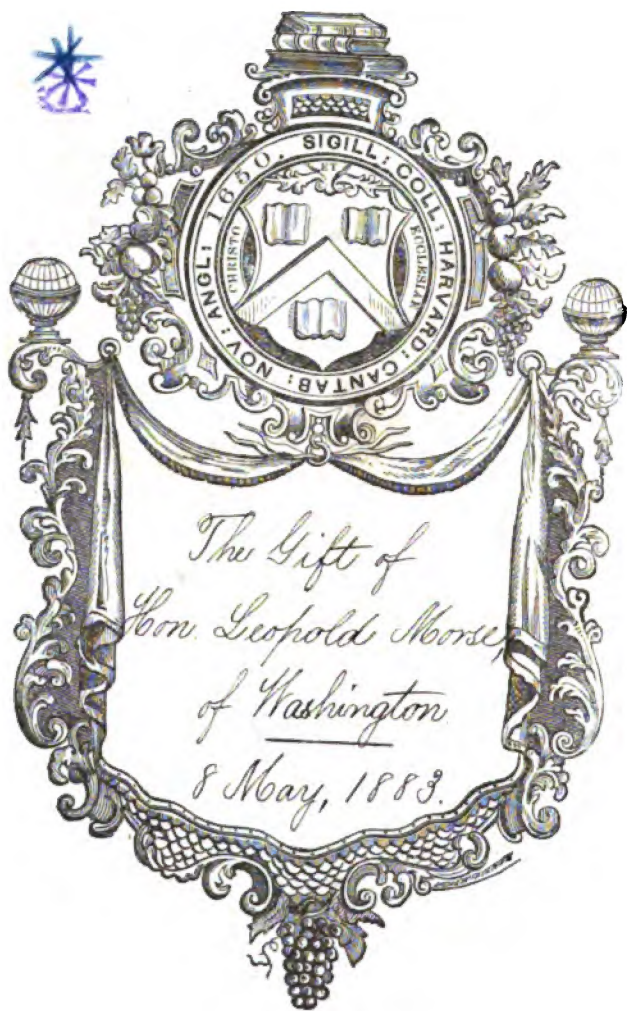 SIGILL: COLL: HARVARD: CANTAB: NOV: ANGL: 1650.
ET
CHRISTO
ECCLESIAE
The Gift of
Hon. Leopold Morse,
of Washington.
8 May, 1883.